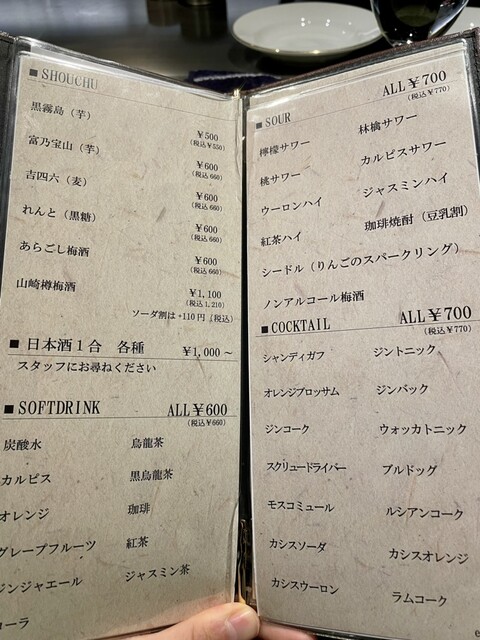 ■ SHOUCHU
黒霧島（芋）
¥500
(税込¥550)
富乃宝山（芋）
¥600
(税込 660)
吉四六（麦）
¥600
(税込 660)
れんと（黒糖）
¥600
(税込 660)
あらごし梅酒
¥600
(税込 660)
山崎樽梅酒
¥1,100
(税込 1,210)
ソーダ割は+110円（税込）
■ 日本酒1合 各種 ¥1,000～
スタッフにお尋ねください
■ SOFTDRINK ALL¥600
(税込¥660)
炭酸水 烏龍茶
カルピス 黒烏龍茶
オレンジ 珈琲
グレープフルーツ 紅茶
ジンジャエール ジャスミン茶
コーラ
■ SOUR ALL¥700
(税込¥770)
檸檬サワー 林檎サワー
桃サワー カルピスサワー
ウーロンハイ ジャスミンハイ
紅茶ハイ 珈琲焼酎（豆乳割）
シードル（りんごのスパークリング）
ノンアルコール梅酒
■ COCKTAIL ALL¥700
(税込¥770)
シャンディガフ ジントニック
オレンジブロッサム ジンバック
ジンコーク ウォッカトニック
スクリュードライバー ブルドッグ
モスコミュール ルシアンコーク
カシスソーダ カシスオレンジ
カシスウーロン ラムコーク